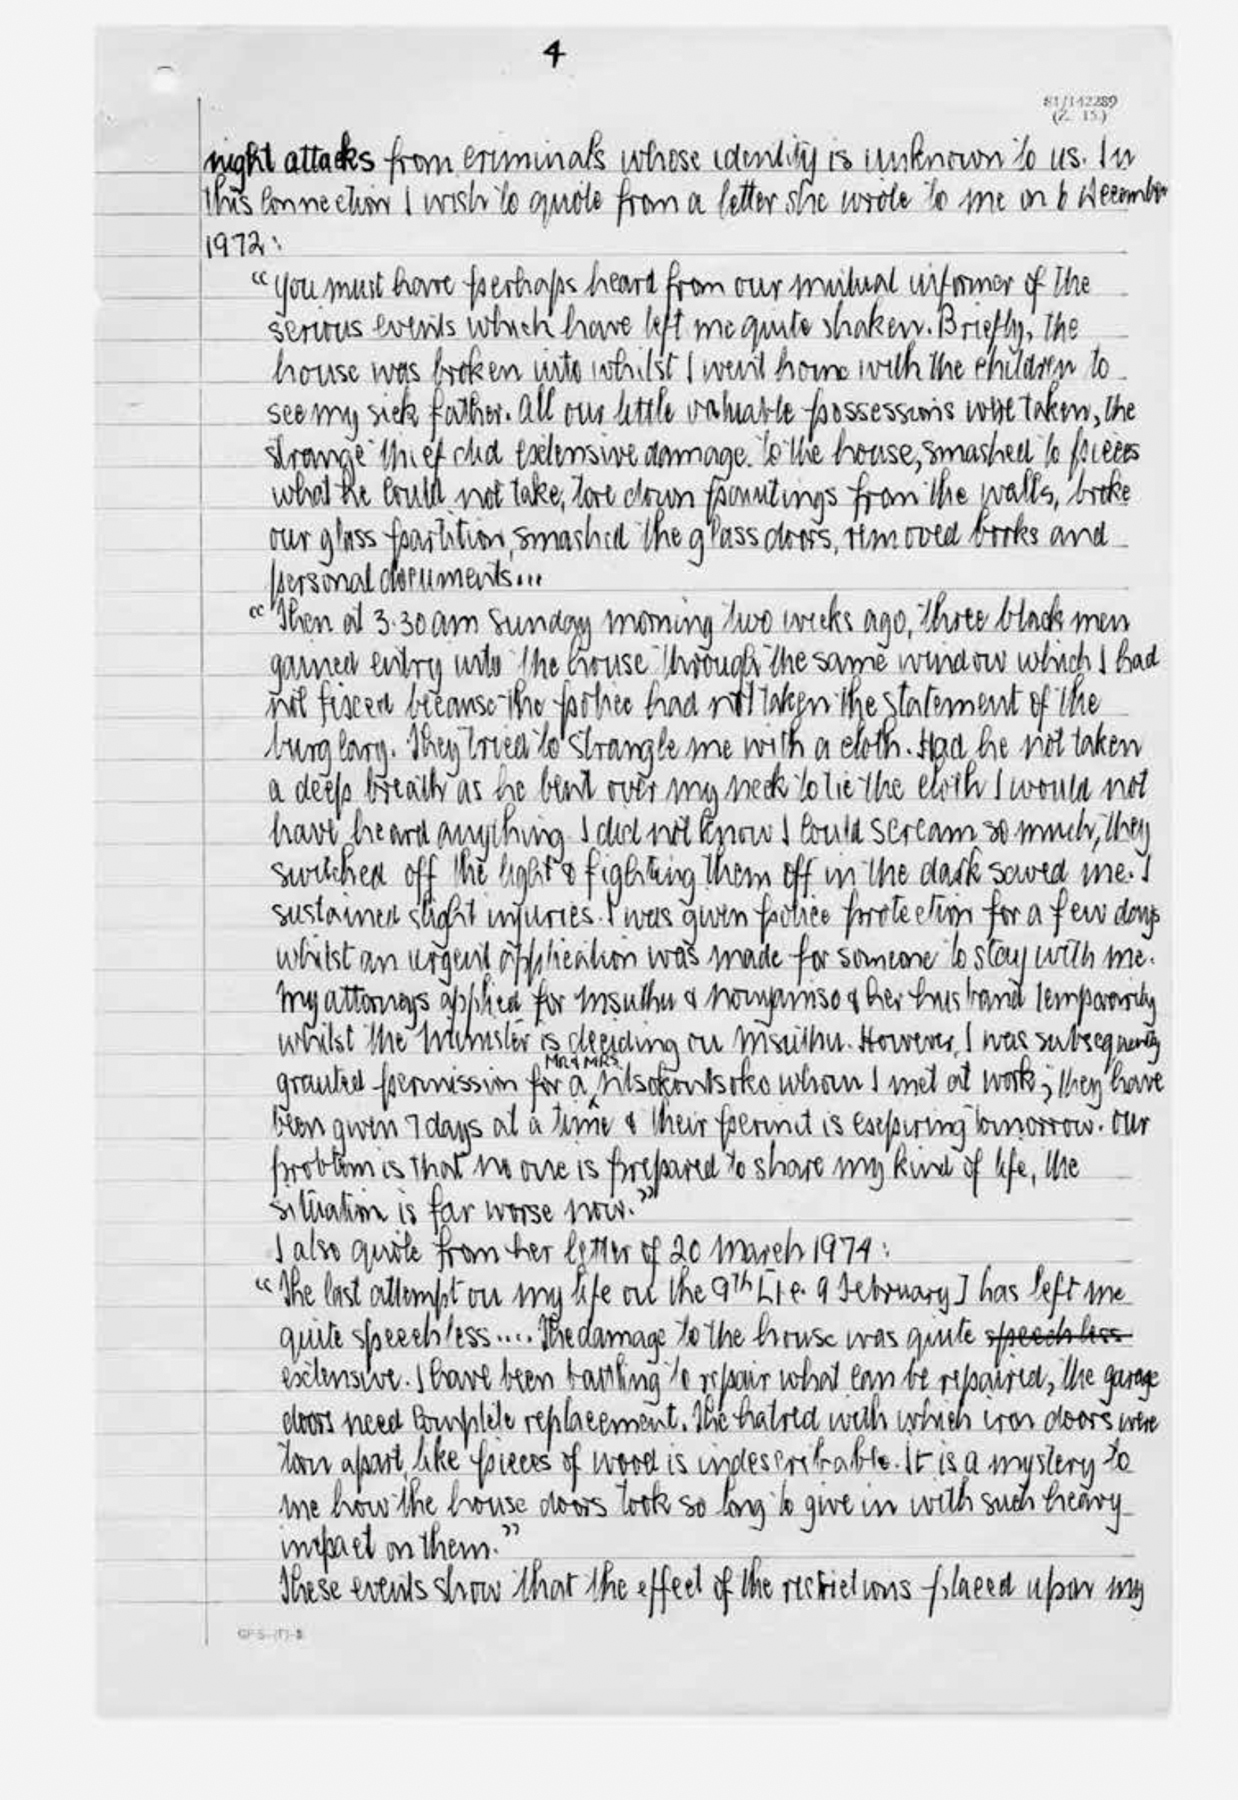 4
81/142289
(Z. 15.)
night attacks from criminals whose identity is unknown to us. In
this connection I wish to quote from a letter she wrote to me on 6 December
1972:
"You must have perhaps heard from our mutual informer of the
serious events which have left me quite shaken. Briefly, the
house was broken into whilst I went home with the children to
see my sick father. All our little valuable possessions were taken, the
strange thief did extensive damage to the house, smashed to pieces
what he could not take, tore down paintings from the walls, broke
our glass partition, smashed the glass doors, removed books and
personal documents...
"Then at 3.30 am Sunday morning two weeks ago, three black men
gained entry into the house through the same window which I had
not fixed because the police had not taken the statement of the
burglary. They tried to strangle me with a cloth. Had he not taken
a deep breath as he bent over my neck to tie the cloth I would not
have heard anything. I did not know I could scream so much, they
switched off the light & fighting them off in the dark saved me. I
sustained slight injuries. I was given police protection for a few days
whilst an urgent application was made for someone to stay with me.
My attorneys applied for Msuthu & Nonyaniso & her husband temporarily
whilst the Minister is deciding on Msuthu. However, I was subsequently
Mr & Mrs
granted permission for a Ntsokontsoko whom I met at work; they have
been given 7 days at a time & their permit is expiring tomorrow. Our
problem is that no one is prepared to share my kind of life, the
situation is far worse now."
I also quote from her letter of 20 March 1974:
"The last attempt on my life on the 9th [i.e. 9 February] has left me
quite speechless.... The damage to the house was quite speechless
extensive. I have been battling to repair what can be repaired, the garage
doors need complete replacement. The hatred with which iron doors were
torn apart like pieces of wood is indescribable. It is a mystery to
me how the house doors took so long to give in with such heavy
impact on them."
These events show that the effect of the restrictions placed upon my